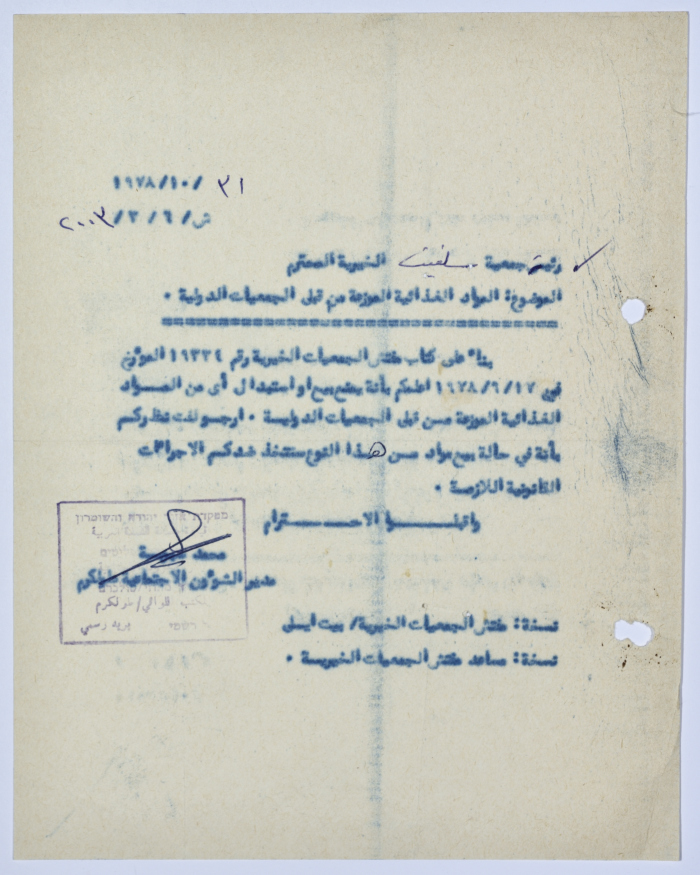 ٣١ /١٠/١٩٧٨
ش/٦/٢/٢٠٠٣
رئيسة جمعية سلفيت الخيرية المحترم
الموضوع: المواد الغذائية الموزعة من قبل الجمعيات الدولية .
بناء على كتاب مفتش الجمعيات الخيرية رقم ١٩٣٣٤ المؤرخ
في ١٩٧٨/٦/١٢ اعلمكم بأنة يمنع بيع او استبدال أى من المواد
الغذائية الموزعة من قبل الجمعيات الدولية . ارجو لفت نظركم
بأنة في حالة بيع مواد من هذا النوع ستتخذ ضدكم الاجراءات
القانونية اللازمة .
واقبلوا الاحترام
محمد
مدير الشوءون الاجتماعية طولكرم
מפקדת יהודה והשומרון
طولكرم
رسمي
نسخة: مفتش الجمعيات الخيرية/ بيت ايل
نسخة: مساعد مفتش الجمعيات الخيرية .